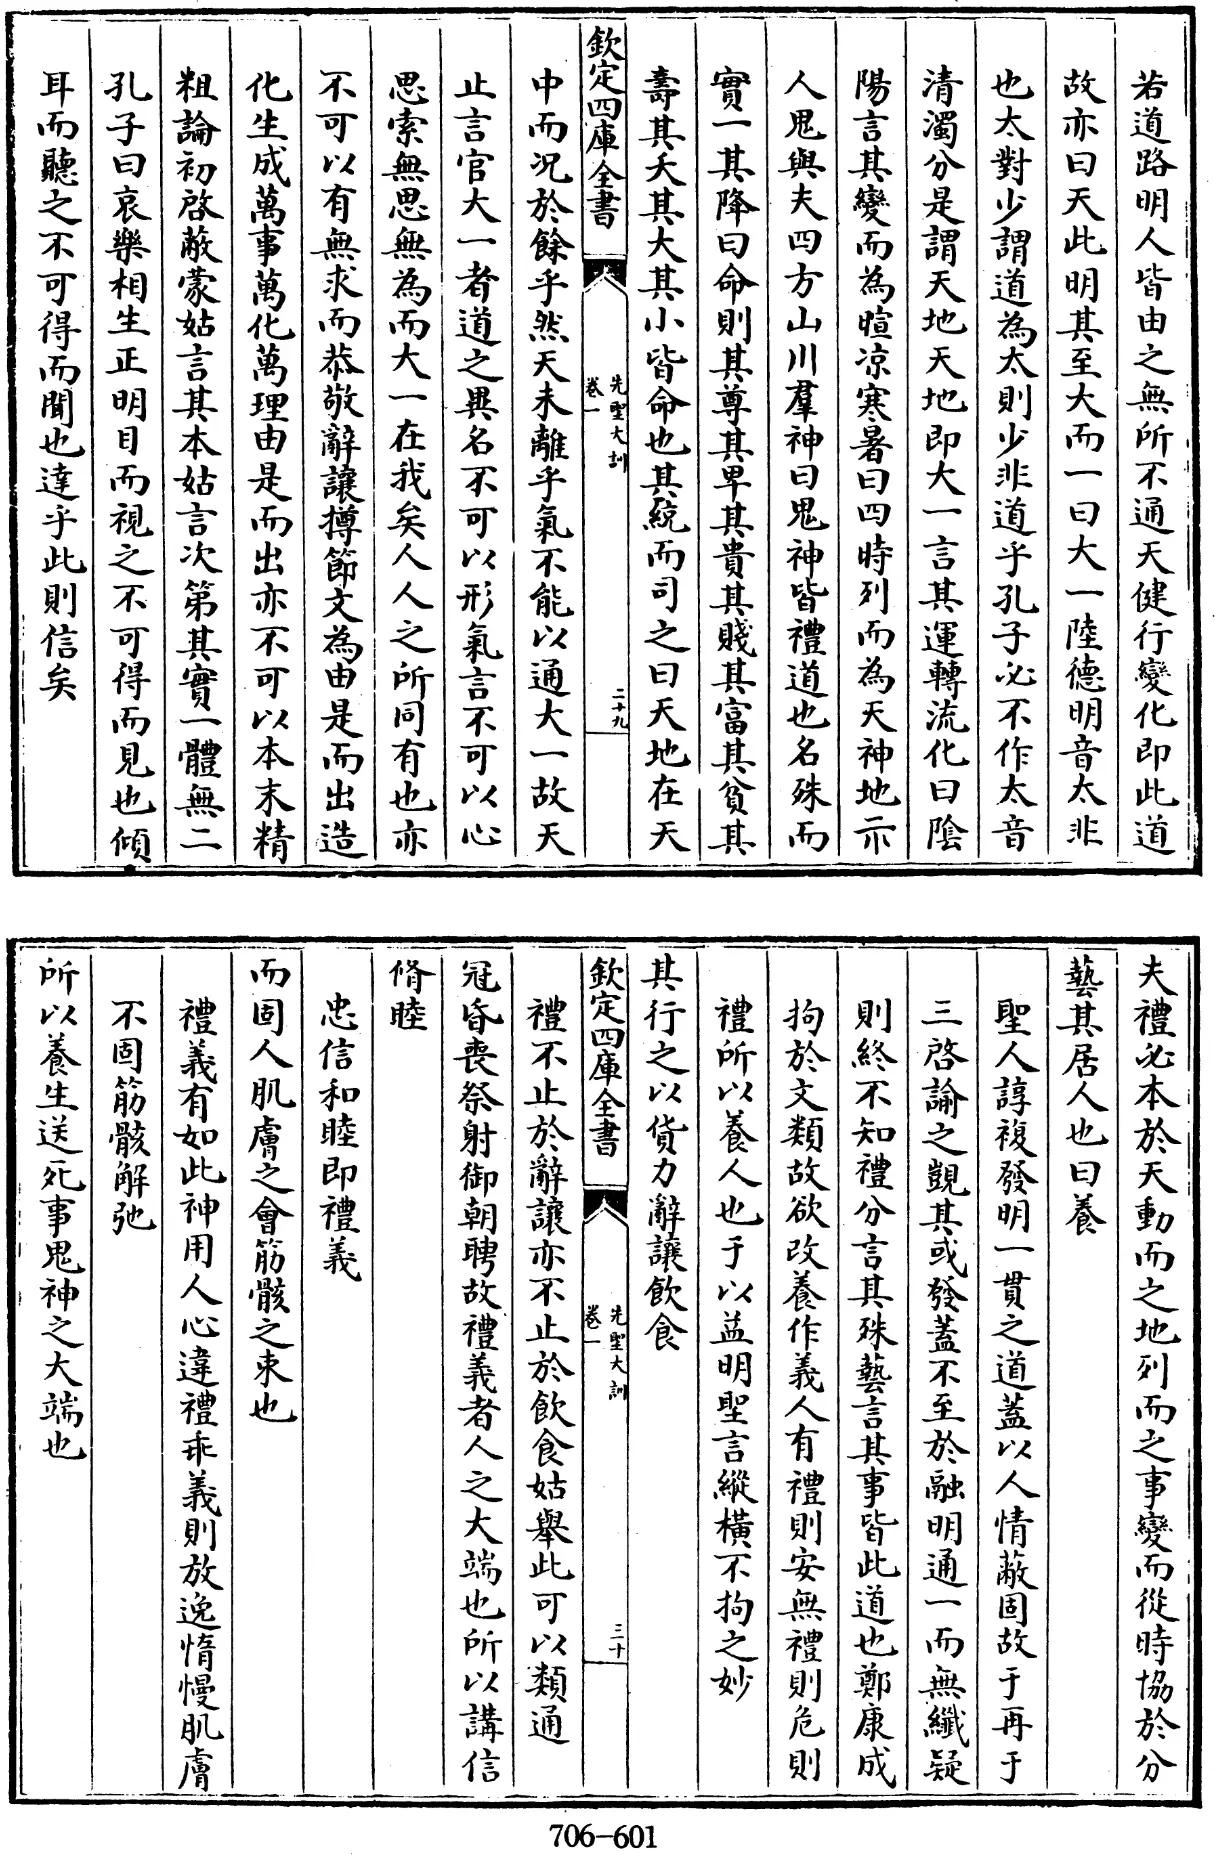 若道路明人皆由之無所不通天健行變化即此道
故亦曰天此明其至大而一曰大一陸德明音太非
也太對少謂道為太則少非道乎孔子必不作太音
清濁分是謂天地天地即大一言其運轉流化曰陰
陽言其變而為暄涼寒暑曰四時列而為天神地示
人鬼與夫四方山川羣神曰鬼神皆禮道也名殊而
實一其降曰命則其尊其卑其貴其賤其富其貧其
壽其夭其大其小皆命也其統而司之曰天地在天
欽定四庫全書
先聖大訓
卷一
二十九
中而况於餘乎然天未離乎氣不能以通大一故天
止言官大一者道之異名不可以形氣言不可以心
思索無思無為而大一在我矣人人之所同有也亦
不可以有無求而恭敬辭讓撙節文為由是而出造
化生成萬事萬化萬理由是而出亦不可以本末精
粗論初啓蔽蒙姑言其本姑言次第其實一體無二
孔子曰哀樂相生正明目而視之不可得而見也傾
耳而聽之不可得而聞也達乎此則信矣
夫禮必本於天動而之地列而之事變而從時協於分
藝其居人也曰養
聖人諄複發明一貫之道蓋以人情蔽固故于再于
三啓諭之覬其或發蓋不至於融明通一而無纖疑
則終不知禮分言其殊藝言其事皆此道也鄭康成
拘於文類故欲改養作義人有禮則安無禮則危則
禮所以養人也于以益明聖言縱橫不拘之妙
其行之以貨力辭讓飲食
欽定四庫全書
先聖大訓
卷一
三十
禮不止於辭讓亦不止於飲食姑舉此可以類通
冠昏喪祭射御朝聘故禮義者人之大端也所以講信
脩睦
忠信和睦即禮義
而固人肌膚之會筋骸之束也
禮義有如此神用人心違禮乖義則放逸惰慢肌膚
不固筋骸解弛
所以養生送死事鬼神之大端也
706-601